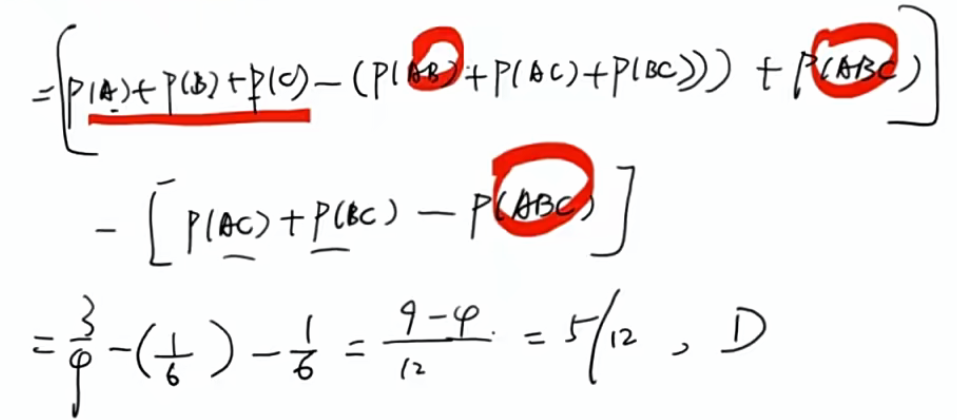 =[P(A)+P(B)+P(C)-(P(AB)+P(AC)+P(BC)))+P(ABC)]
-[P(AC)+P(BC)-P(ABC)]
=3/4-(1/6)-1/6=(9-4)/12=5/12, D